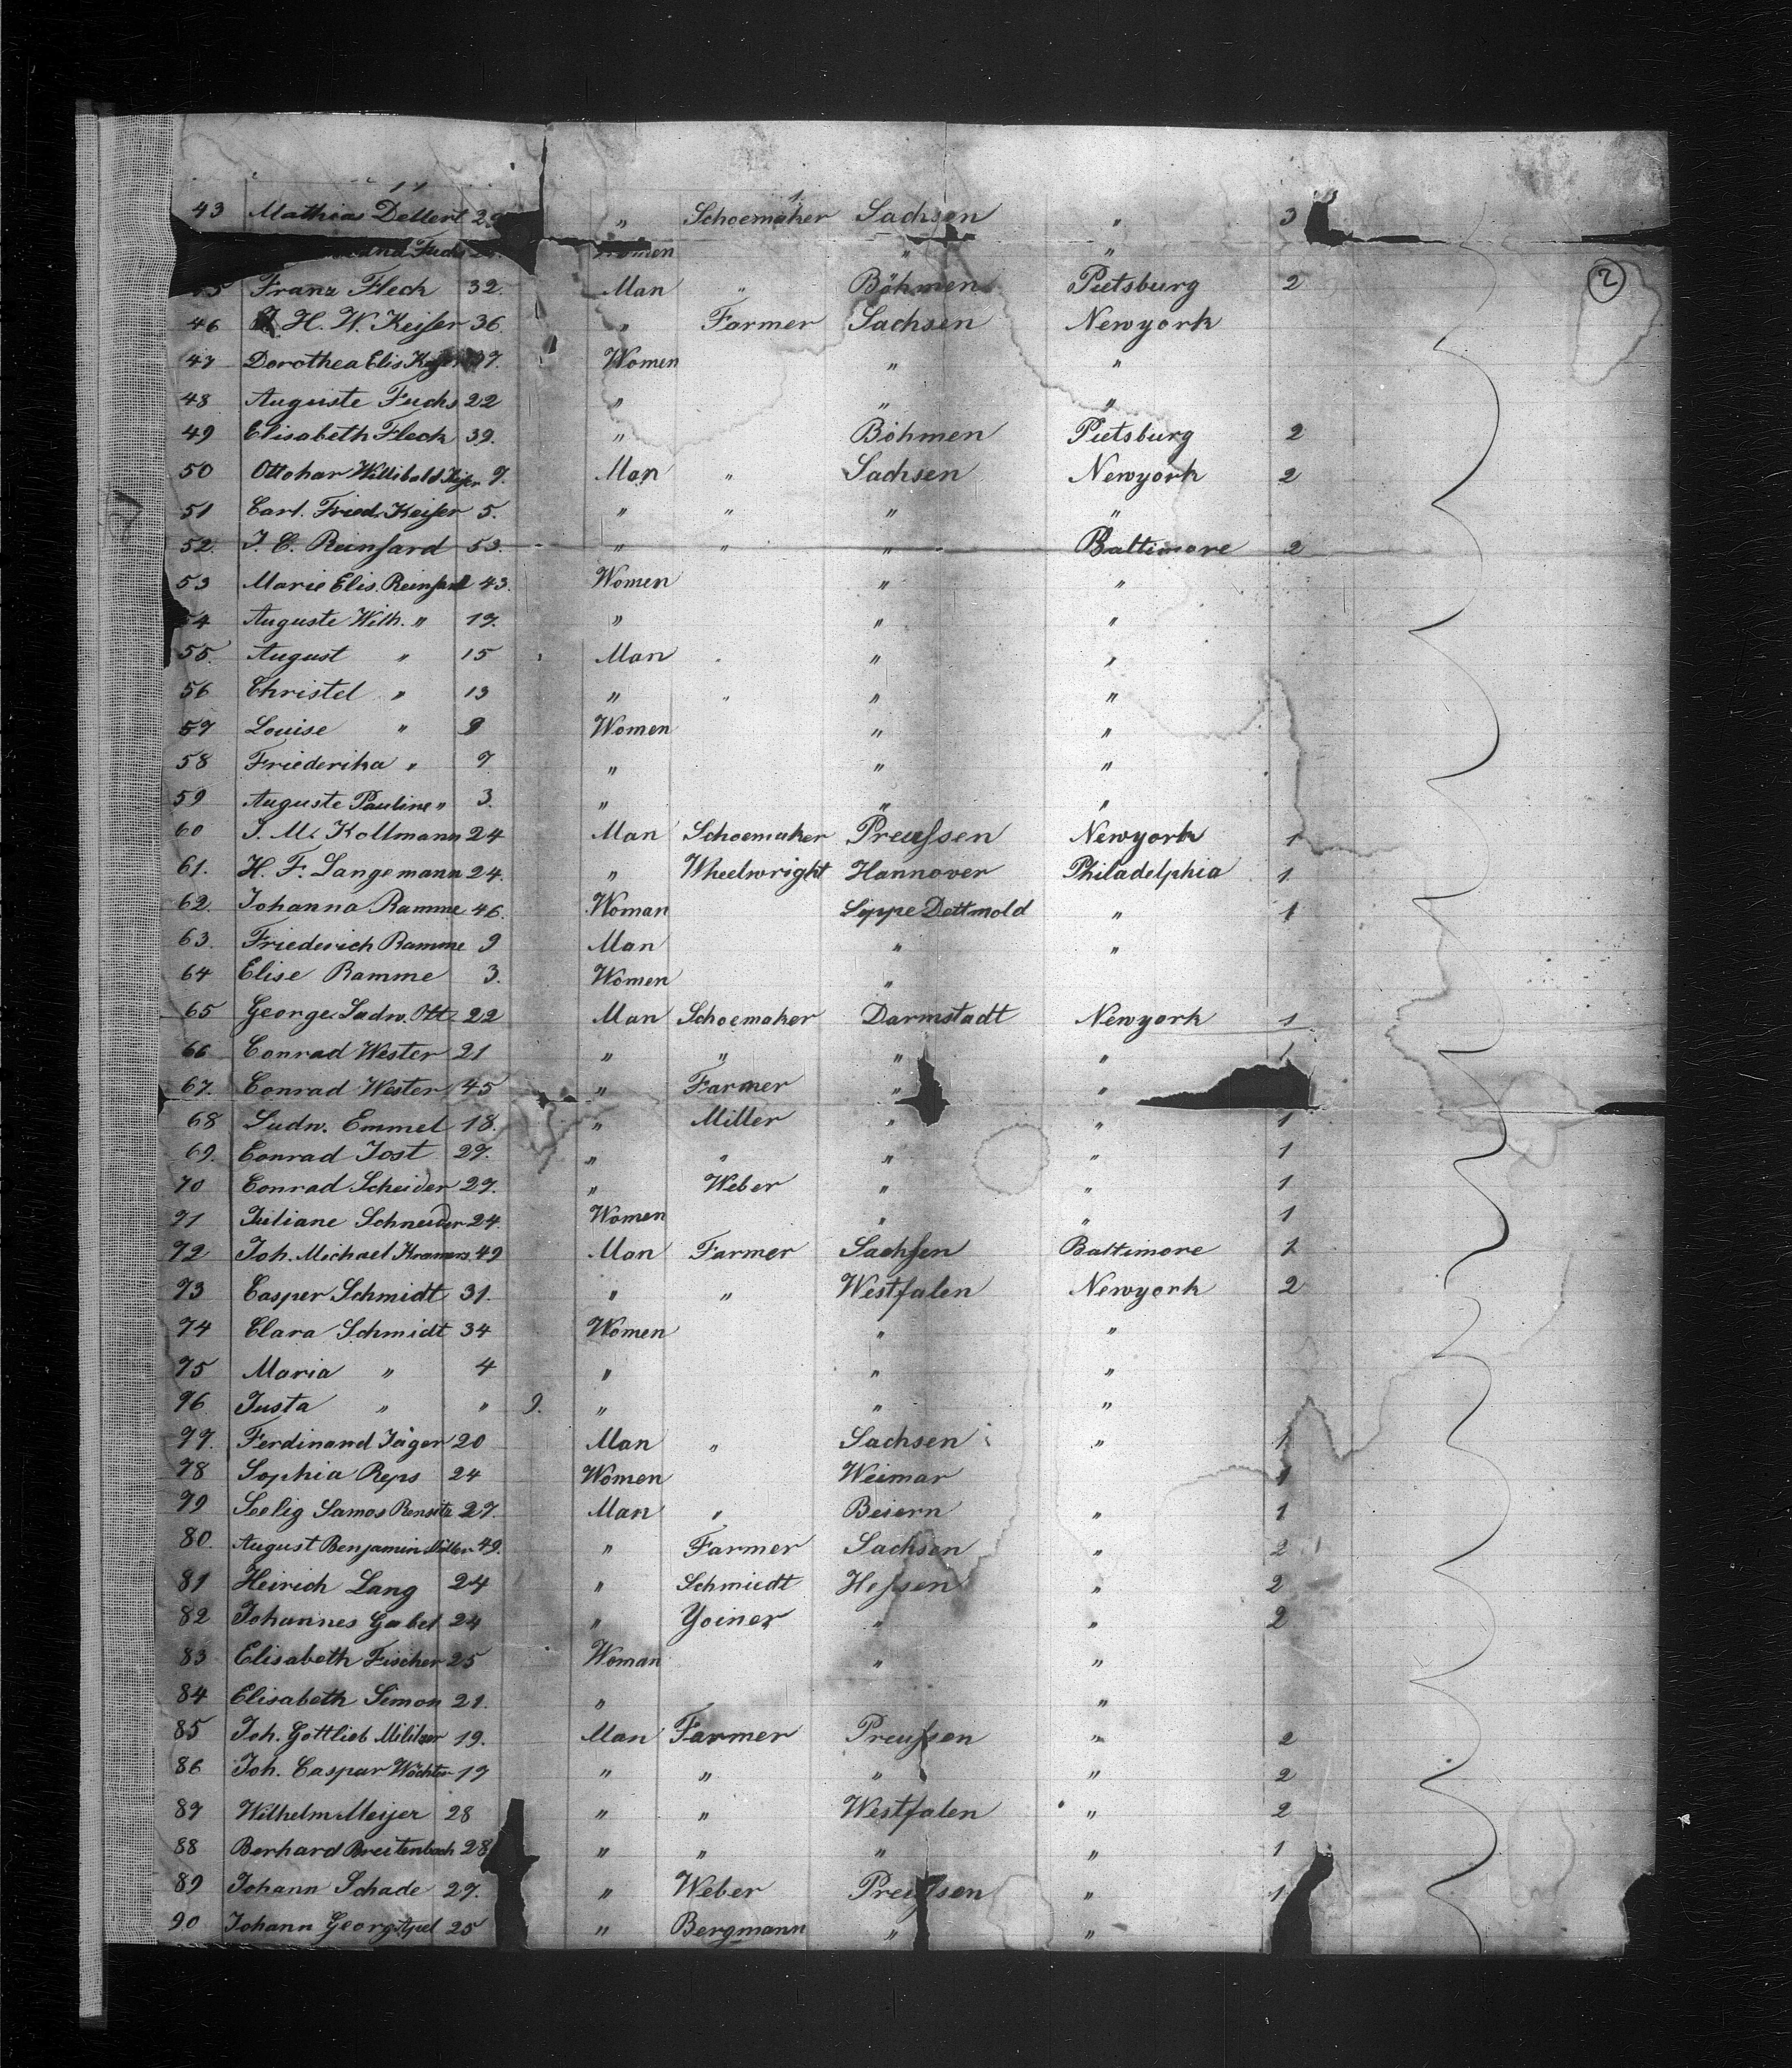 " 1
43 Mathias Dellert 29 " Schoemaker Sachsen " 3
Fuchs Women " "
Franz Flech 32. Man " Böhmen Pietsburg 2
46 H. W. Keiſer 36. " Farmer Sachsen Newyork
47 Dorothea Elis Women " "
48 Auguste Fuchs 22 " " "
49 Elisabeth Flech 39. " Böhmen Pietsburg 2
50 Ottohar Willibold 9. Man " Sachsen Newyork 2
51 Carl. Fried. Keiſer 5. " " " "
52. J. C. Reinſard 53. " " " Baltimore 2
53 Marie Elis. Reinſard 43. Women " "
54 Auguste Wilh. " 17. " " "
55. August " 15 Man " "
56 Christel " 13 " " " "
57 Louise " 9 Women " "
58 Friederika " 7 " " "
59 Auguste Pauline " 3. " " "
60 J. M. Kollmann 24 Man Schoemaker Preuſsen Newyork 1
61. H. F. Langemann 24. " Wheelwright Hannover Philadelphia 1
62. Johanna Ramme 46. Woman Lippe Dettmold " 1
63. Friederich Ramme 9 Man " "
64 Elise Ramme 3. Women "
65 George Ludw. Ott 22 Man Schoemaker Darmstadt Newyork 1
66 Conrad Wester 21 " " " " 1
67. Conrad Wester 45 " Farmer " "
68 Ludw. Emmel 18. " Miller " " 1
69. Conrad Jost 27. " " " " 1
70 Conrad Scheider 27. " Weber " " 1
71 Juliane Schneider 24. Women " " 1
72 Joh. Michael Kramers. 49 Man Farmer Sachſen Baltimore 1
73 Casper Schmidt 31. " " Westfalen Newyork 2
74 Clara Schmidt 34 Women " "
75 Maria " 4 " " "
76 Justa " " 9. " " "
77. Ferdinand Jäger 20 Man " Sachsen " 1
78 Sophia Reps 24 Women Weimar 1
79 Seelig Samos 27. Man " Beiern " 1
80. August Benjamin Müller 49. " Farmer Sachsen " 2
81 Heirich Lang 24 " Schmiedt Heſsen " 2
82 Johannes Gabel 24 " Yoiner " " 2
83 Elisabeth Fischer 25 Woman " "
84 Elisabeth Simon 21. " "
85 Joh. Gottlieb Militzer 19. Man Farmer Preuſsen " 2
86 Joh. Caspar Wächter 17 " " " " 2
87 Wilhelm Meijer 28 " " Westfalen " 2
88 Berhard Breitenbach 28 " " " " 1
89 Johann Schade 27. " Weber Preuſsen " 1
90 Johann Georg Apel 25 " Bergmann " "
2